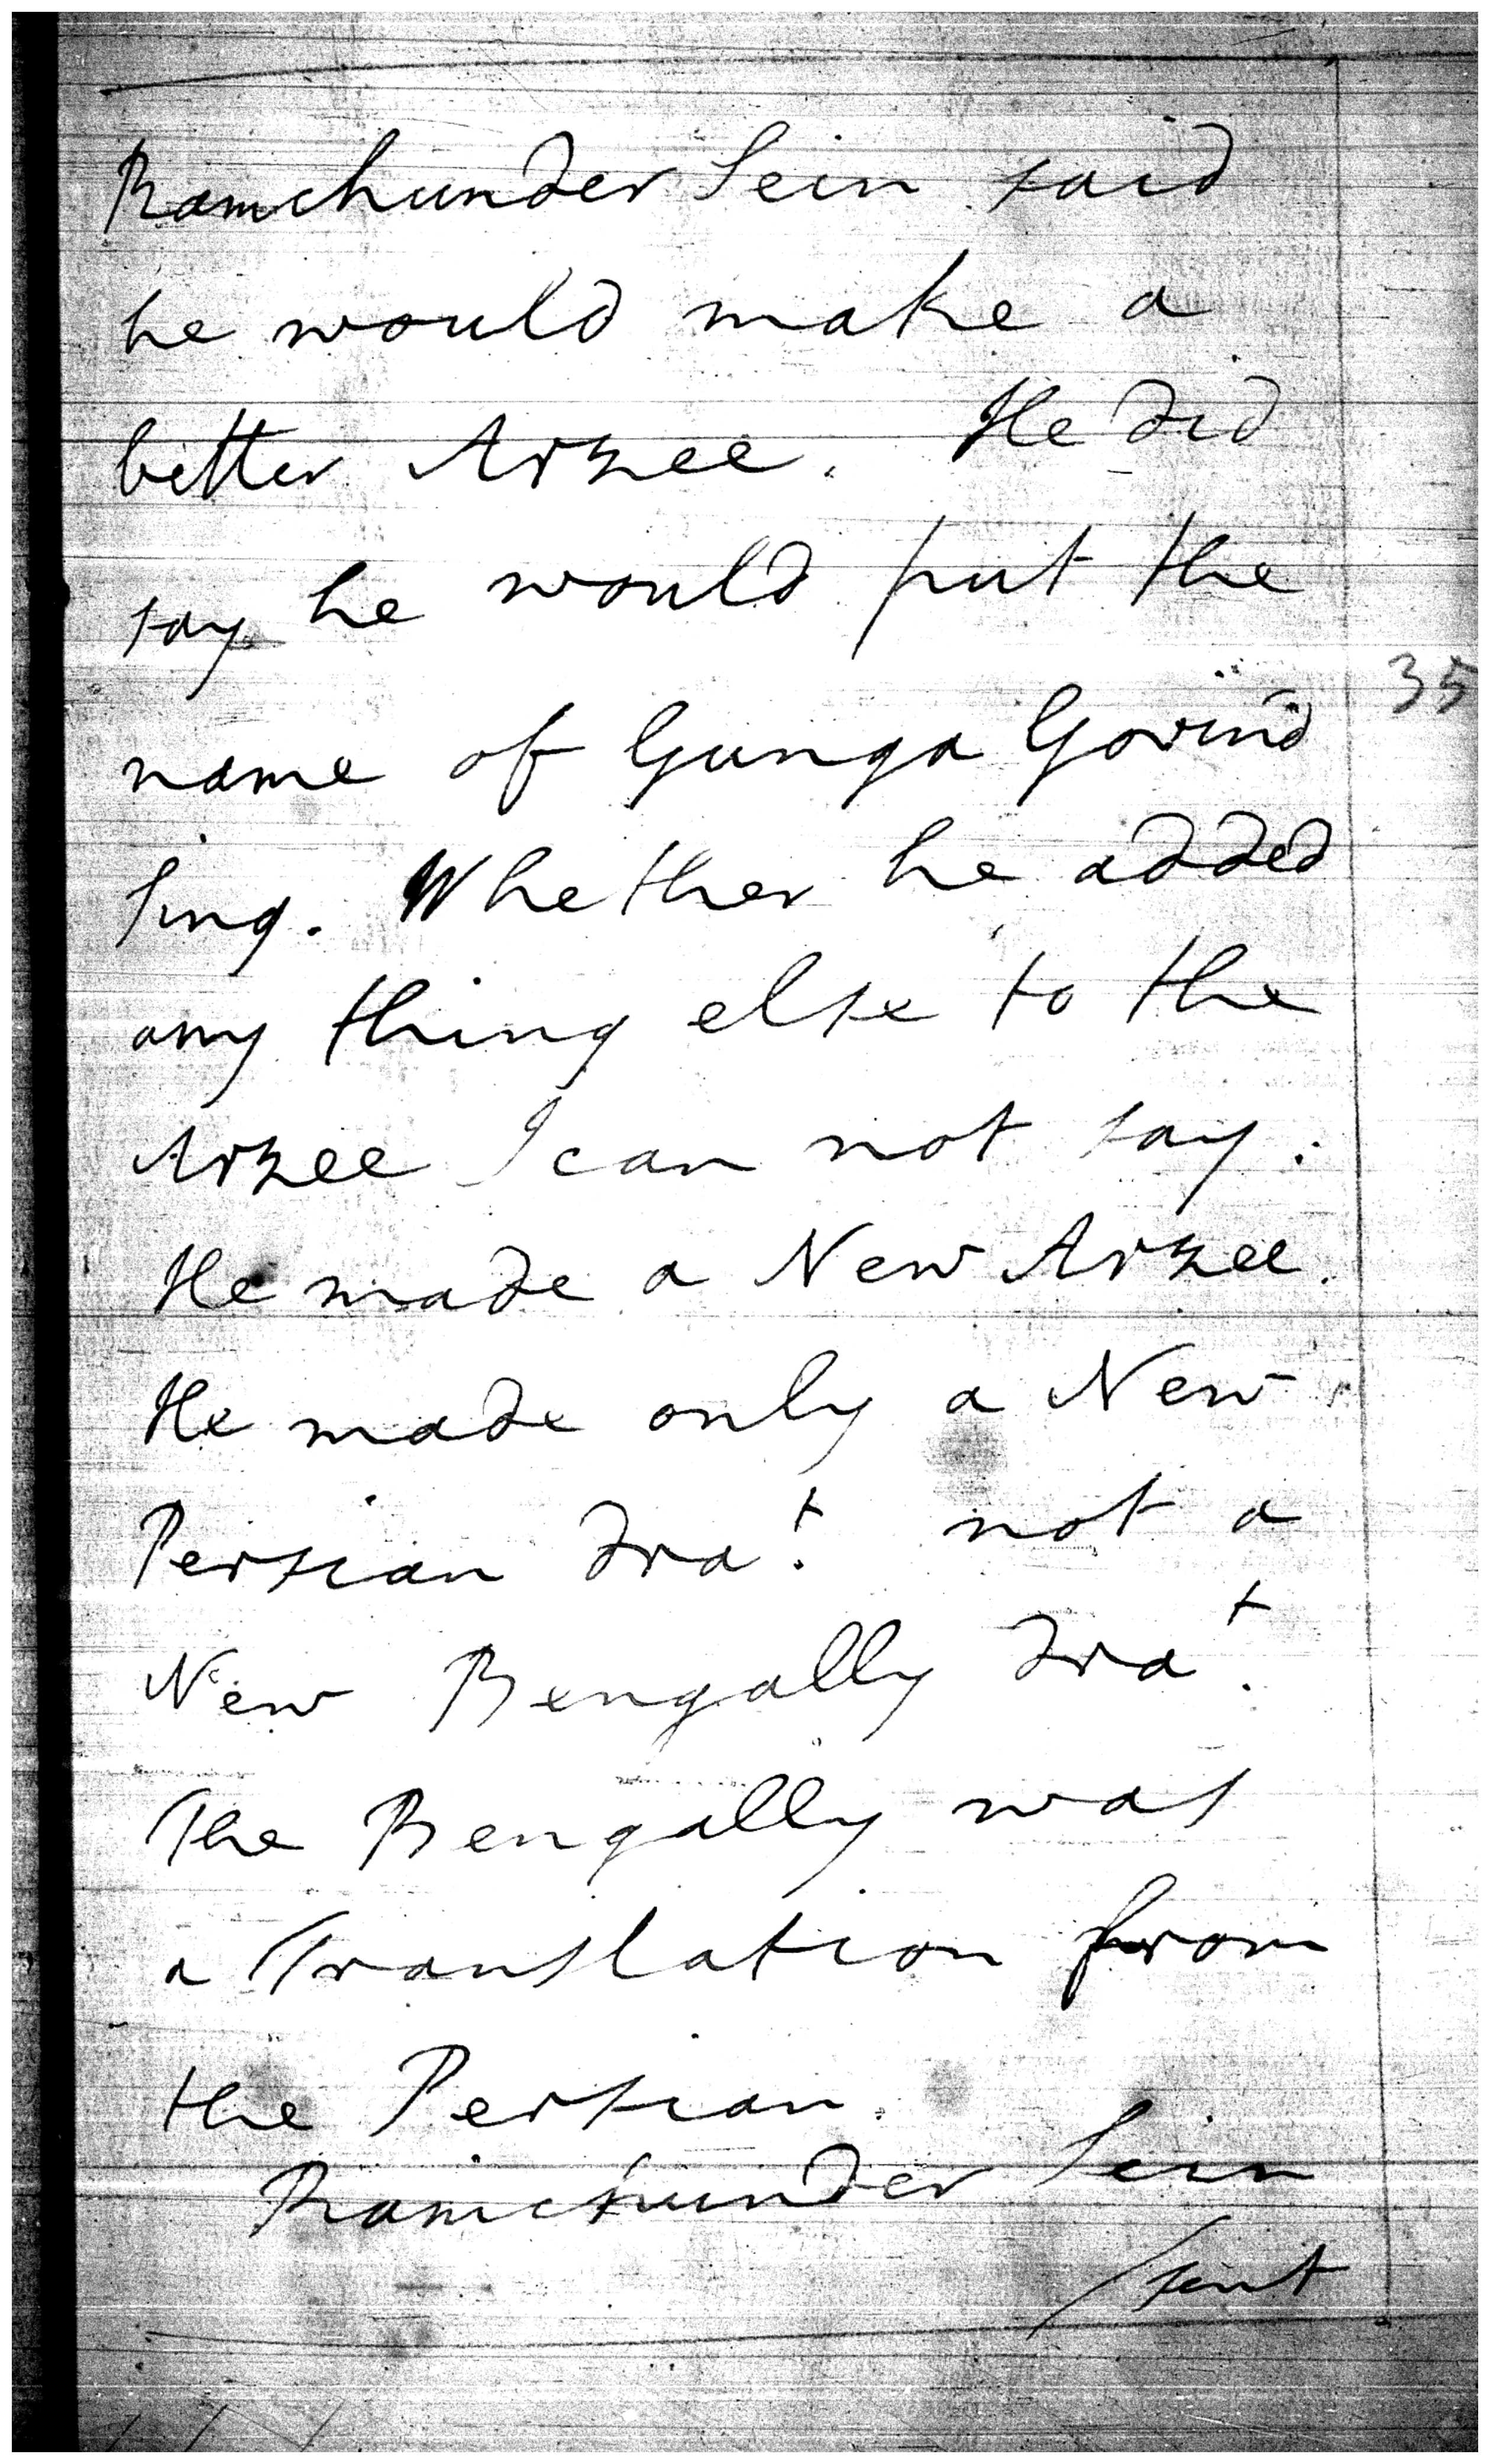 Ramchunder Sein said
he would make a
better Arzee. He did
say he would put the
name of Gunga Govind
35
Sing. Whether he added
any thing else to the
Arzee I can not say.
He made a New Arzee.
He made only a New
Persian Dra.t not a
New Bengally Dra.t
The Bengally was
a Translation from
the Persian.
Ramchunder Sein
/sent